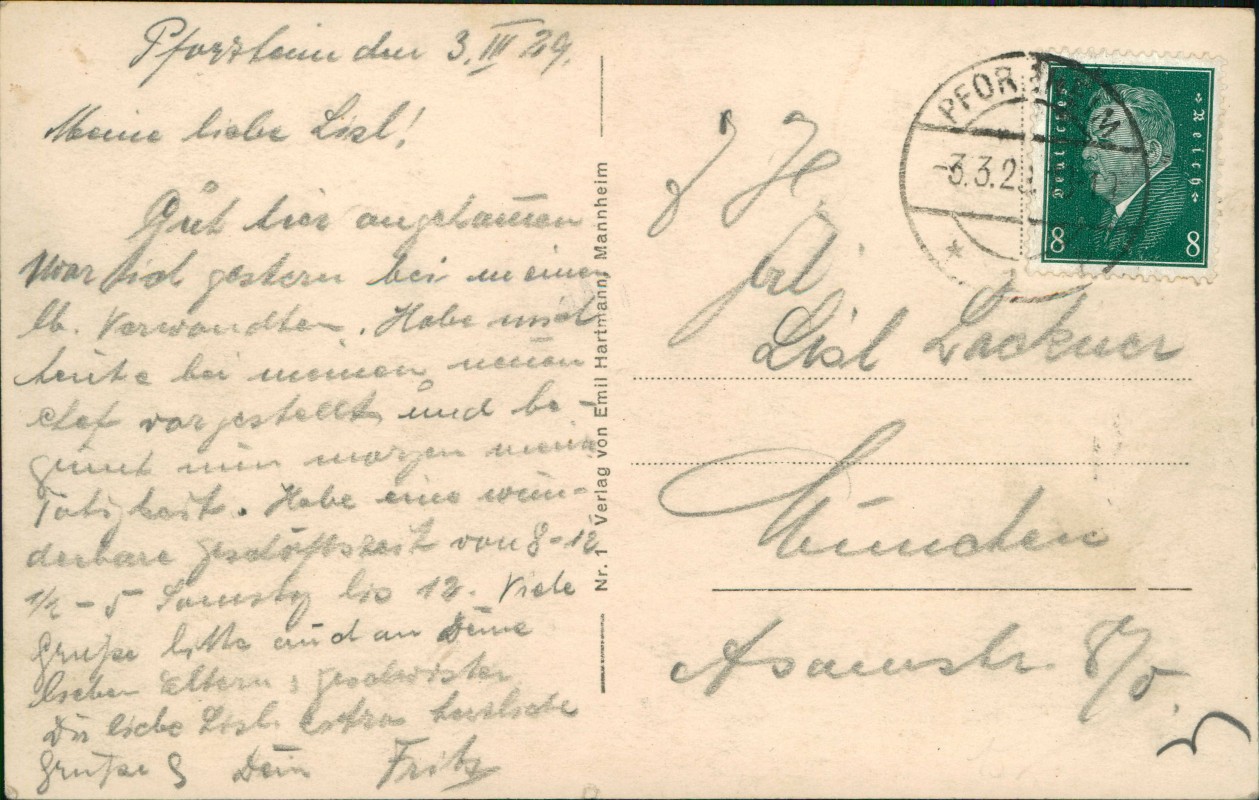 Pforzheim den 3. III 29.
Meine liebe Lisl!
Gut hier angekommen
War ich gestern bei meinen
lb. Verwandten. Habe mich
heute bei meinem neuen
Chef vorgestellt und be-
ginnt nun morgen meine
Tätigkeit. Habe eine wun-
derbare Geschäftszeit von 8-12
1/2 - 5 Samstag bis 12. Viele
Grüße bitte auch an Deine
lieben Eltern, Geschwister
Du liebe Lisl extra herzliche
Grüße Dein Fritz
Nr. 1 Verlag von Emil Hartmann, Mannheim
PFORZHEIM
-3.3.2
Deutsches Reich
8 8
Frl.
Lisl Lackner
München
Asamstr. 8/0.